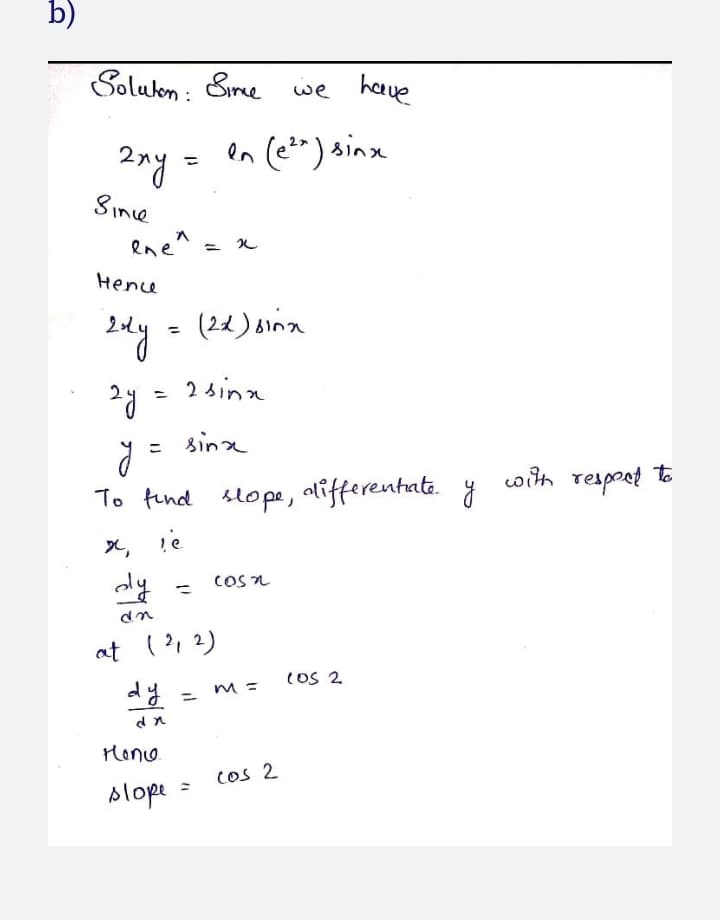 b)
Soluton: Sine we have
2xy = ln (e²ˣ) sinx
Since
lneˣ = x
Hence
2xy = (2x) sinx
2y = 2 sinx
y = sinx
To find slope, differentiate y with respect to
x, ie
dy/dx = cosx
at (2, 2)
dy/dx = m = cos 2
Hence
slope = cos 2